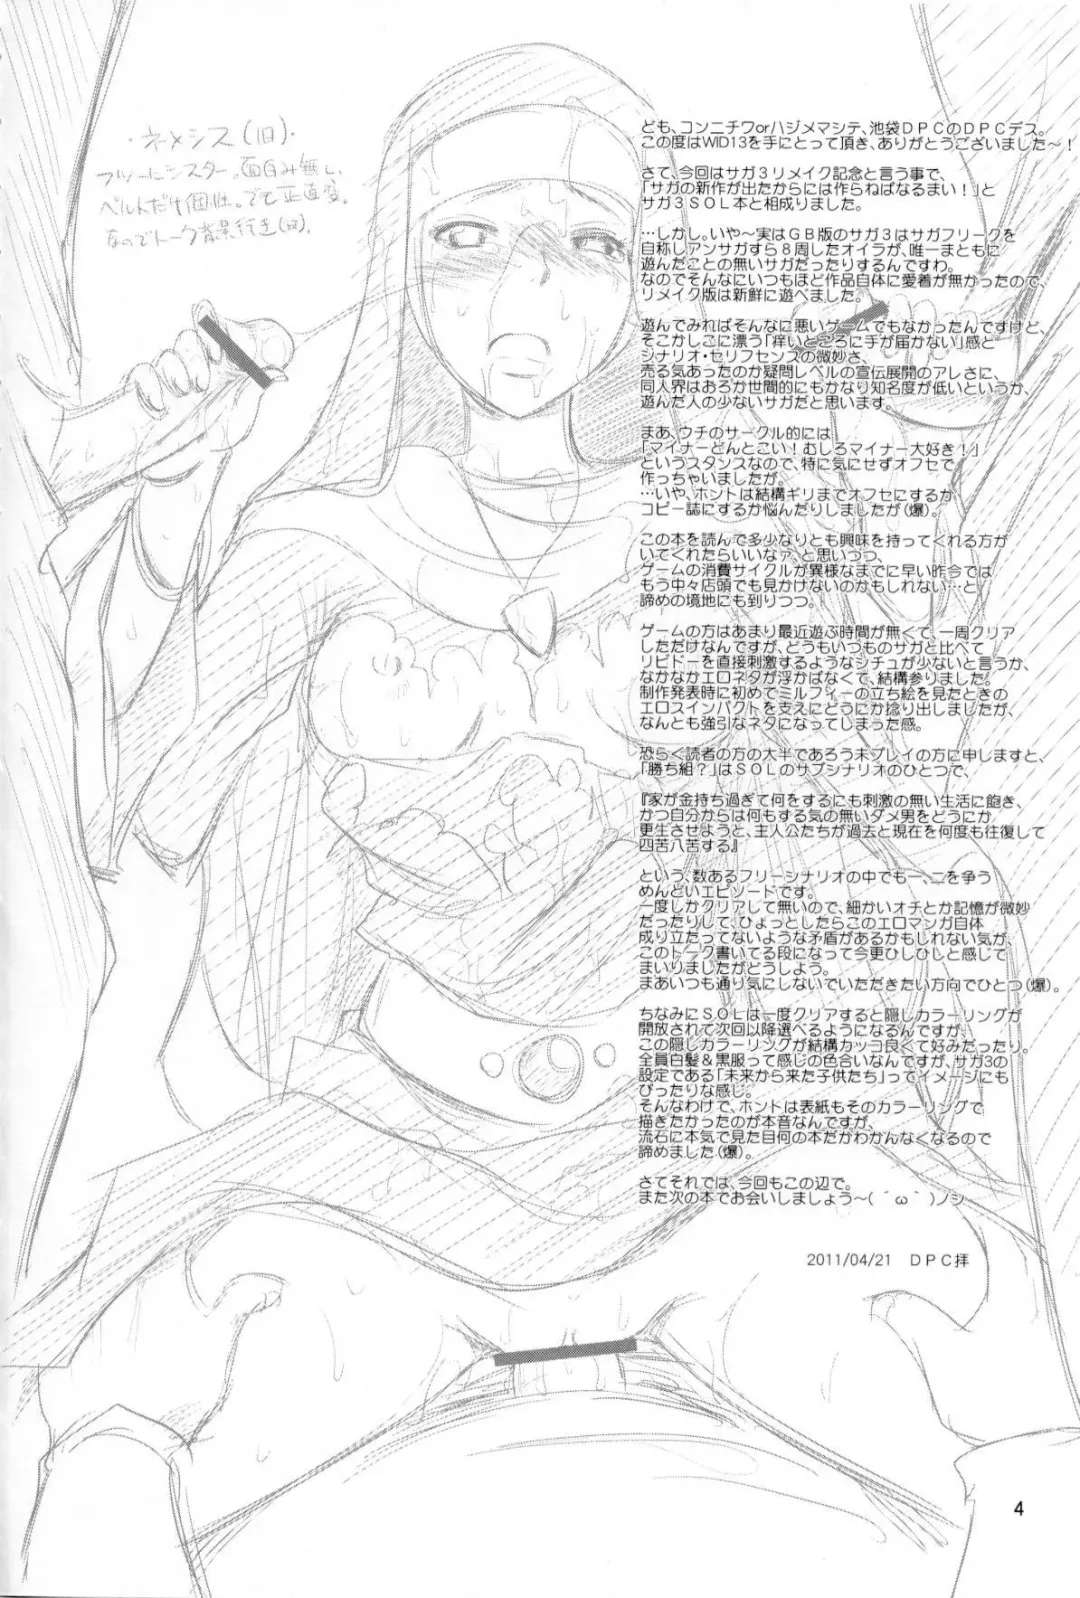 ・ネメシス(旧)・
ども、コンニチワorハジメマシテ、池袋DPCのDPCデス。
この度はWID13を手にとって頂き、ありがとうございました～！
さて、今回はサガ3リメイク記念と言う事で、
「サガの新作が出たからには作らねばなるまい！」と
サガ3SOL本と相成りました。
…しかし。いや～実はGB版のサガ3はサガフリークを
自称しアンサガすら8周したオイラが、唯一まともに
遊んだことの無いサガだったりするんですわ。
なのでそんなにいつもほど作品自体に愛着が無かったので、
リメイク版は新鮮に遊べました。
遊んでみればそんなに悪いゲームでもなかったんですけど、
そこかしこに漂う「痒いところに手が届かない」感と
シナリオ・セリフセンスの微妙さ、
売る気あったのか疑問レベルの宣伝展開のアレさに、
同人界はおろか世間的にもかなり知名度が低いというか、
遊んだ人の少ないサガだと思います。
まあ、ウチのサークル的には
「マイナーどんとこい！むしろマイナー大好き！」
というスタンスなので、特に気にせずオフセで
作っちゃいましたが。
…いや、ホントは結構ギリまでオフセにするか
コピー誌にするか悩んだりしましたが(爆)。
この本を読んで多少なりとも興味を持ってくれる方が
いてくれたらいいなァ、と思いつつ、
ゲームの消費サイクルが異様なまでに早い昨今では
もう中々店頭でも見かけないのかもしれない…と
諦めの境地にも到りつつ。
ゲームの方はあまり最近遊ぶ時間が無くて、一周クリア
しただけなんですが、どうもいつものサガと比べて
リビドーを直接刺激するようなシチュが少ないと言うか、
なかなかエロネタが浮かばなくて、結構参りました。
制作発表時に初めてミルフィーの立ち絵を見たときの
エロスインパクトを支えにどうにか捻り出しましたが、
なんとも強引なネタになってしまった感。
恐らく読者の方の大半であろう未プレイの方に申しますと、
「勝ち組？」はSOLのサブシナリオのひとつで、
『家が金持ち過ぎて何をするにも刺激の無い生活に飽き、
かつ自分からは何もする気の無いダメ男をどうにか
更生させようと、主人公たちが過去と現在を何度も往復して
四苦八苦する』
という、数あるフリーシナリオの中でも一、二を争う
めんどいエピソードです。
一度しかクリアして無いので、細かいオチとか記憶が微妙
だったりして、ひょっとしたらこのエロマンガ自体
成り立たってないような矛盾があるかもしれない気が、
このトーク書いてる段になって今更ひしひしと感じて
まいりましたがどうしよう。
まあいつも通り気にしないでいただきたい方向でひとつ(爆)。
ちなみにSOLは一度クリアすると隠しカラーリングが
開放されて次回以降選べるようになるんですが、
この隠しカラーリングが結構カッコ良くて好みだったり。
全員白髪＆黒服って感じの色合いなんですが、サガ3の
設定である「未来から来た子供たち」ってイメージにも
ぴったりな感じ。
そんなわけで、ホントは表紙もそのカラーリングで
描きたかったのが本音なんですが、
流石に本気で見た目何の本だかわかんなくなるので
諦めました(爆)。
さてそれでは、今回もこの辺で。
また次の本でお会いしましょう～(　´ω｀)ノシ
2011/04/21　DPC拝
4